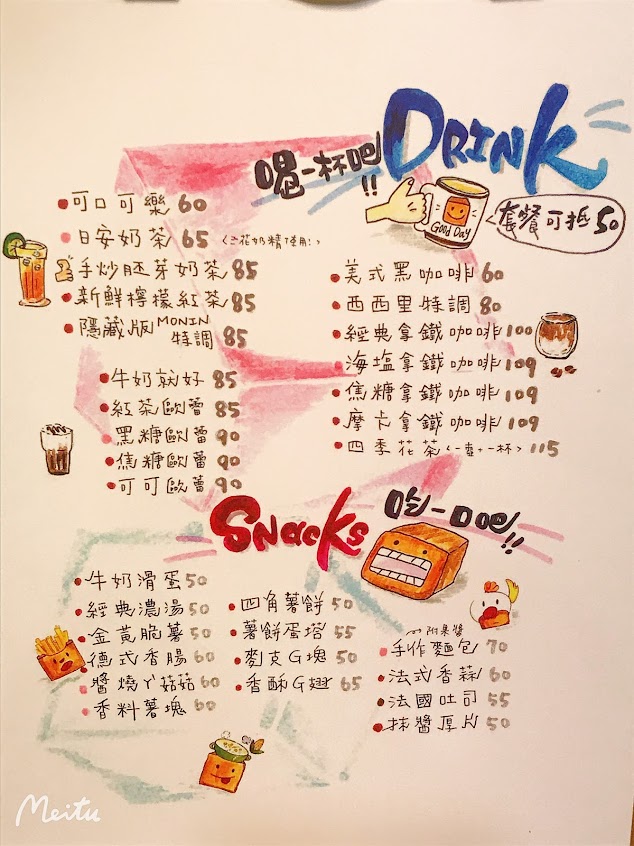 喝一杯吧!! DRINK
Good Day
套餐可抵50
可口可樂 60
日安奶茶 65 (三花奶精使用!)
手炒胚芽奶茶 85
新鮮檸檬紅茶 85
隱藏版MONIN特調 85
牛奶就好 85
紅茶歐蕾 85
黑糖歐蕾 90
焦糖歐蕾 90
可可歐蕾 90
美式黑咖啡 60
西西里特調 80
經典拿鐵咖啡 100
海塩拿鐵咖啡 109
焦糖拿鐵咖啡 109
摩卡拿鐵咖啡 109
四季花茶<一壺+一杯> 115
SNACKS 吃一口吧!!
牛奶滑蛋 50
經典濃湯 50
金黃脆薯 50
德式香腸 60
醬燒ㄚ菇菇 60
香料薯塊 60
四角薯餅 50
薯餅蛋塔 55
麥克G塊 50
香酥G翅 65
附果醬
手作麵包 70
法式香蒜 60
法國吐司 55
抹醬厚片 50
Meitu